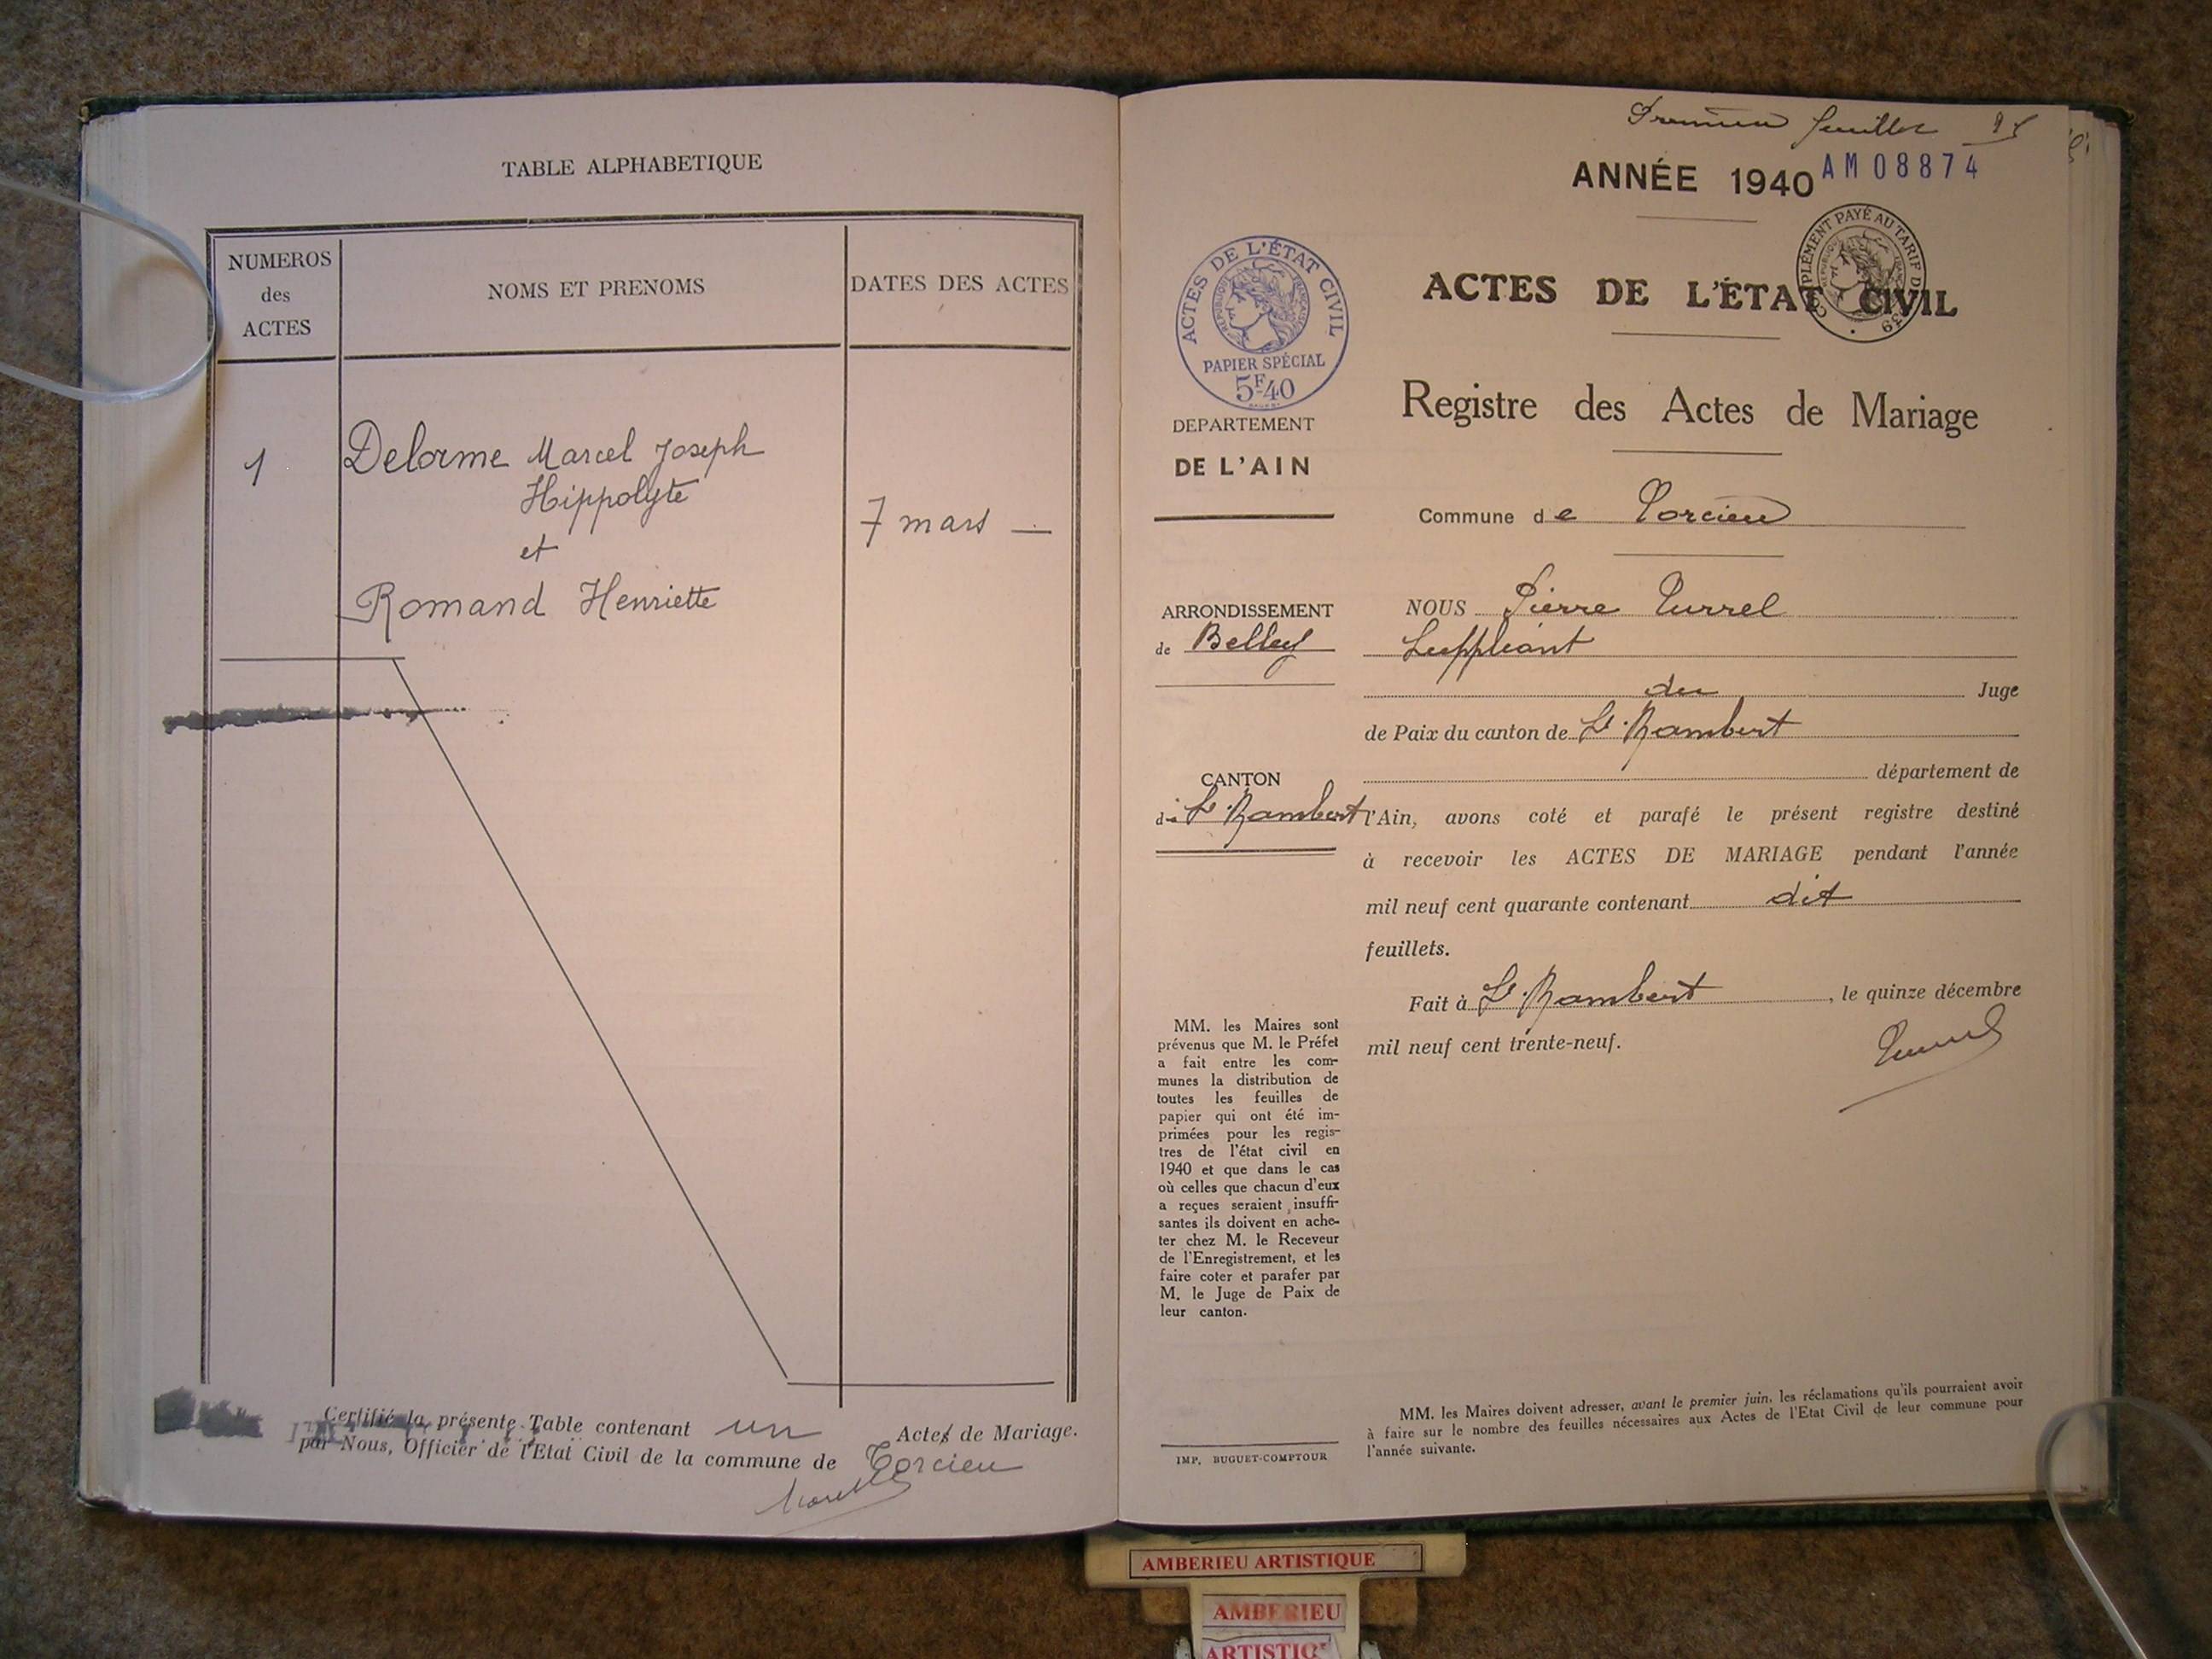 TABLE ALPHABETIQUE
NUMEROS
des
ACTES
NOMS ET PRENOMS
DATES DES ACTES
1
Delorme Marcel Joseph
Hippolyte
et
Romand Henriette
7 mars —
Certifié la présente Table contenant un Actes de Mariage.
par Nous, Officier de l'Etat Civil de la commune de Torcieu
Premier feuillet
ANNÉE 1940
AM08874
ACTES DE L'ÉTAT CIVIL
RÉPUBLIQUE FRANÇAISE
PAPIER SPÉCIAL
5F.40
COMPLÉMENT PAYÉ AU TARIF DE 1939
ACTES DE L'ÉTAT CIVIL
Registre des Actes de Mariage
Commune de Torcieu
DEPARTEMENT
DE L'AIN
ARRONDISSEMENT
de Belley
CANTON
de St Rambert
NOUS Pierre Turrel
Suppléant
du Juge
de Paix du canton de St Rambert
département de
l'Ain, avons coté et parafé le présent registre destiné
à recevoir les ACTES DE MARIAGE pendant l'année
mil neuf cent quarante contenant dix
feuillets.
Fait à St Rambert, le quinze décembre
mil neuf cent trente-neuf.
Turrel
MM. les Maires sont
prévenus que M. le Préfet
a fait entre les com-
munes la distribution de
toutes les feuilles de
papier qui ont été im-
primées pour les regis-
tres de l'état civil en
1940 et que dans le cas
où celles que chacun d'eux
a reçues seraient insuffi-
santes ils doivent en ache-
ter chez M. le Receveur
de l'Enregistrement, et les
faire coter et parafer par
M. le Juge de Paix de
leur canton.
IMP. BUGUET-COMPTOUR
MM. les Maires doivent adresser, avant le premier juin, les réclamations qu'ils pourraient avoir
à faire sur le nombre des feuilles nécessaires aux Actes de l'Etat Civil de leur commune pour
l'année suivante.
AMBERIEU ARTISTIQUE
AMBERIEU
ARTISTIQ